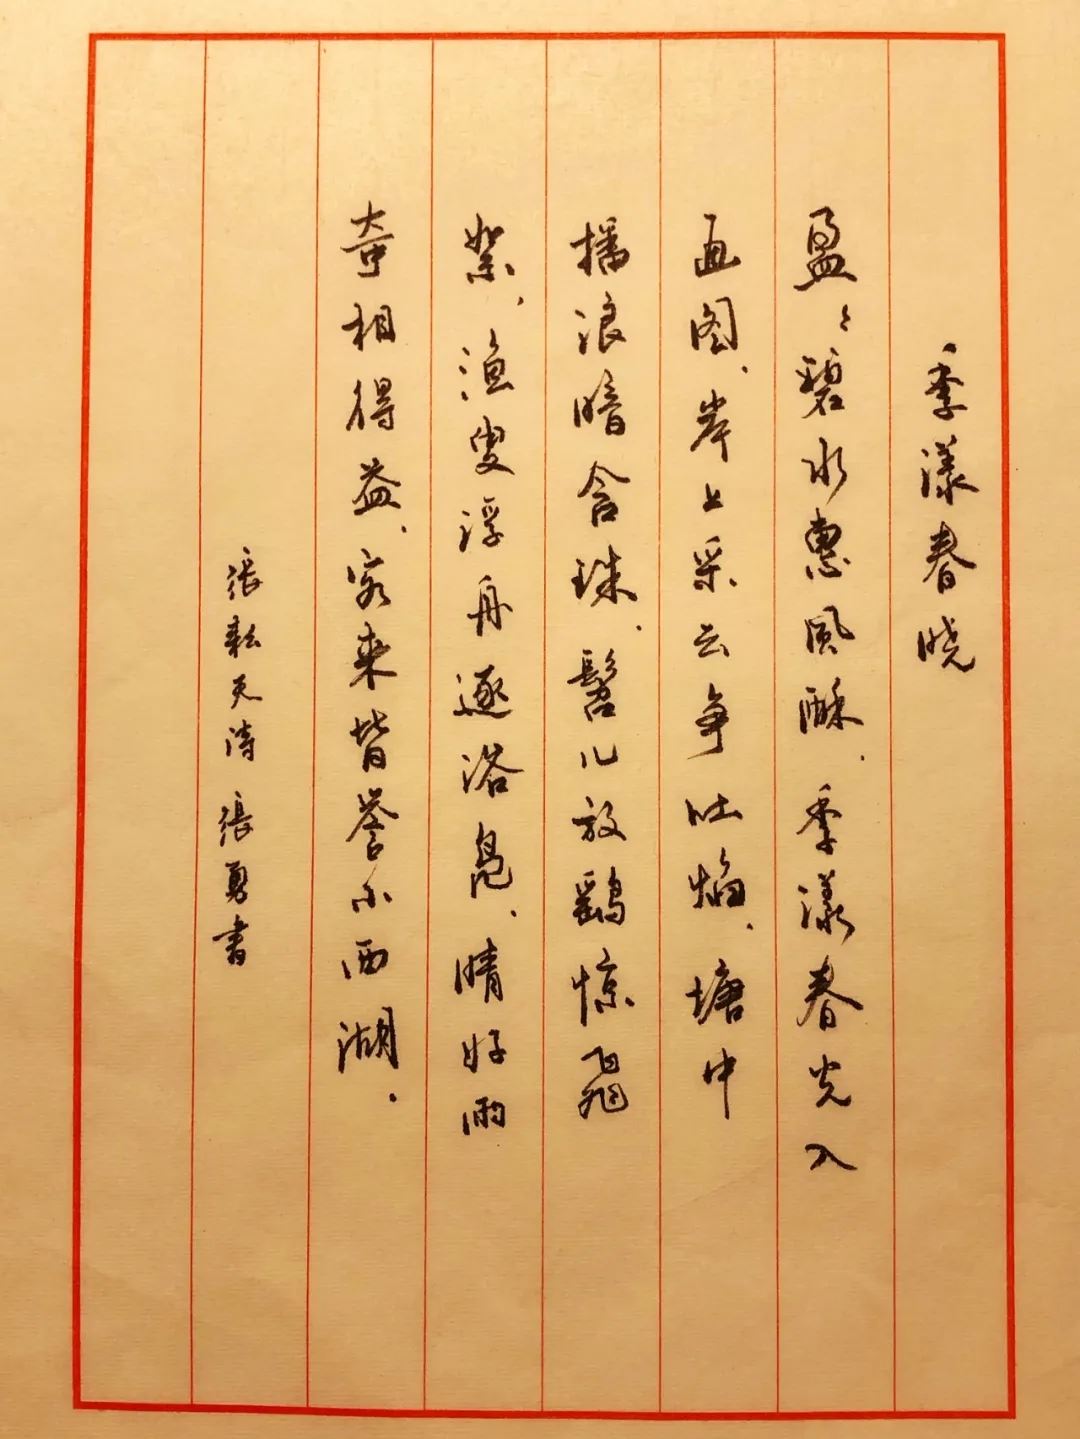 季漾春晓
盈々碧水惠風酥、季漾春光入
画图、岸上采云争吐焰、塘中
播浪暗含珠、髫儿放鷂惊飛
絮,渔叟浮舟逐浴凫、晴好雨
奇相得益、客来皆誉小西湖.
張耘天诗 張勇書